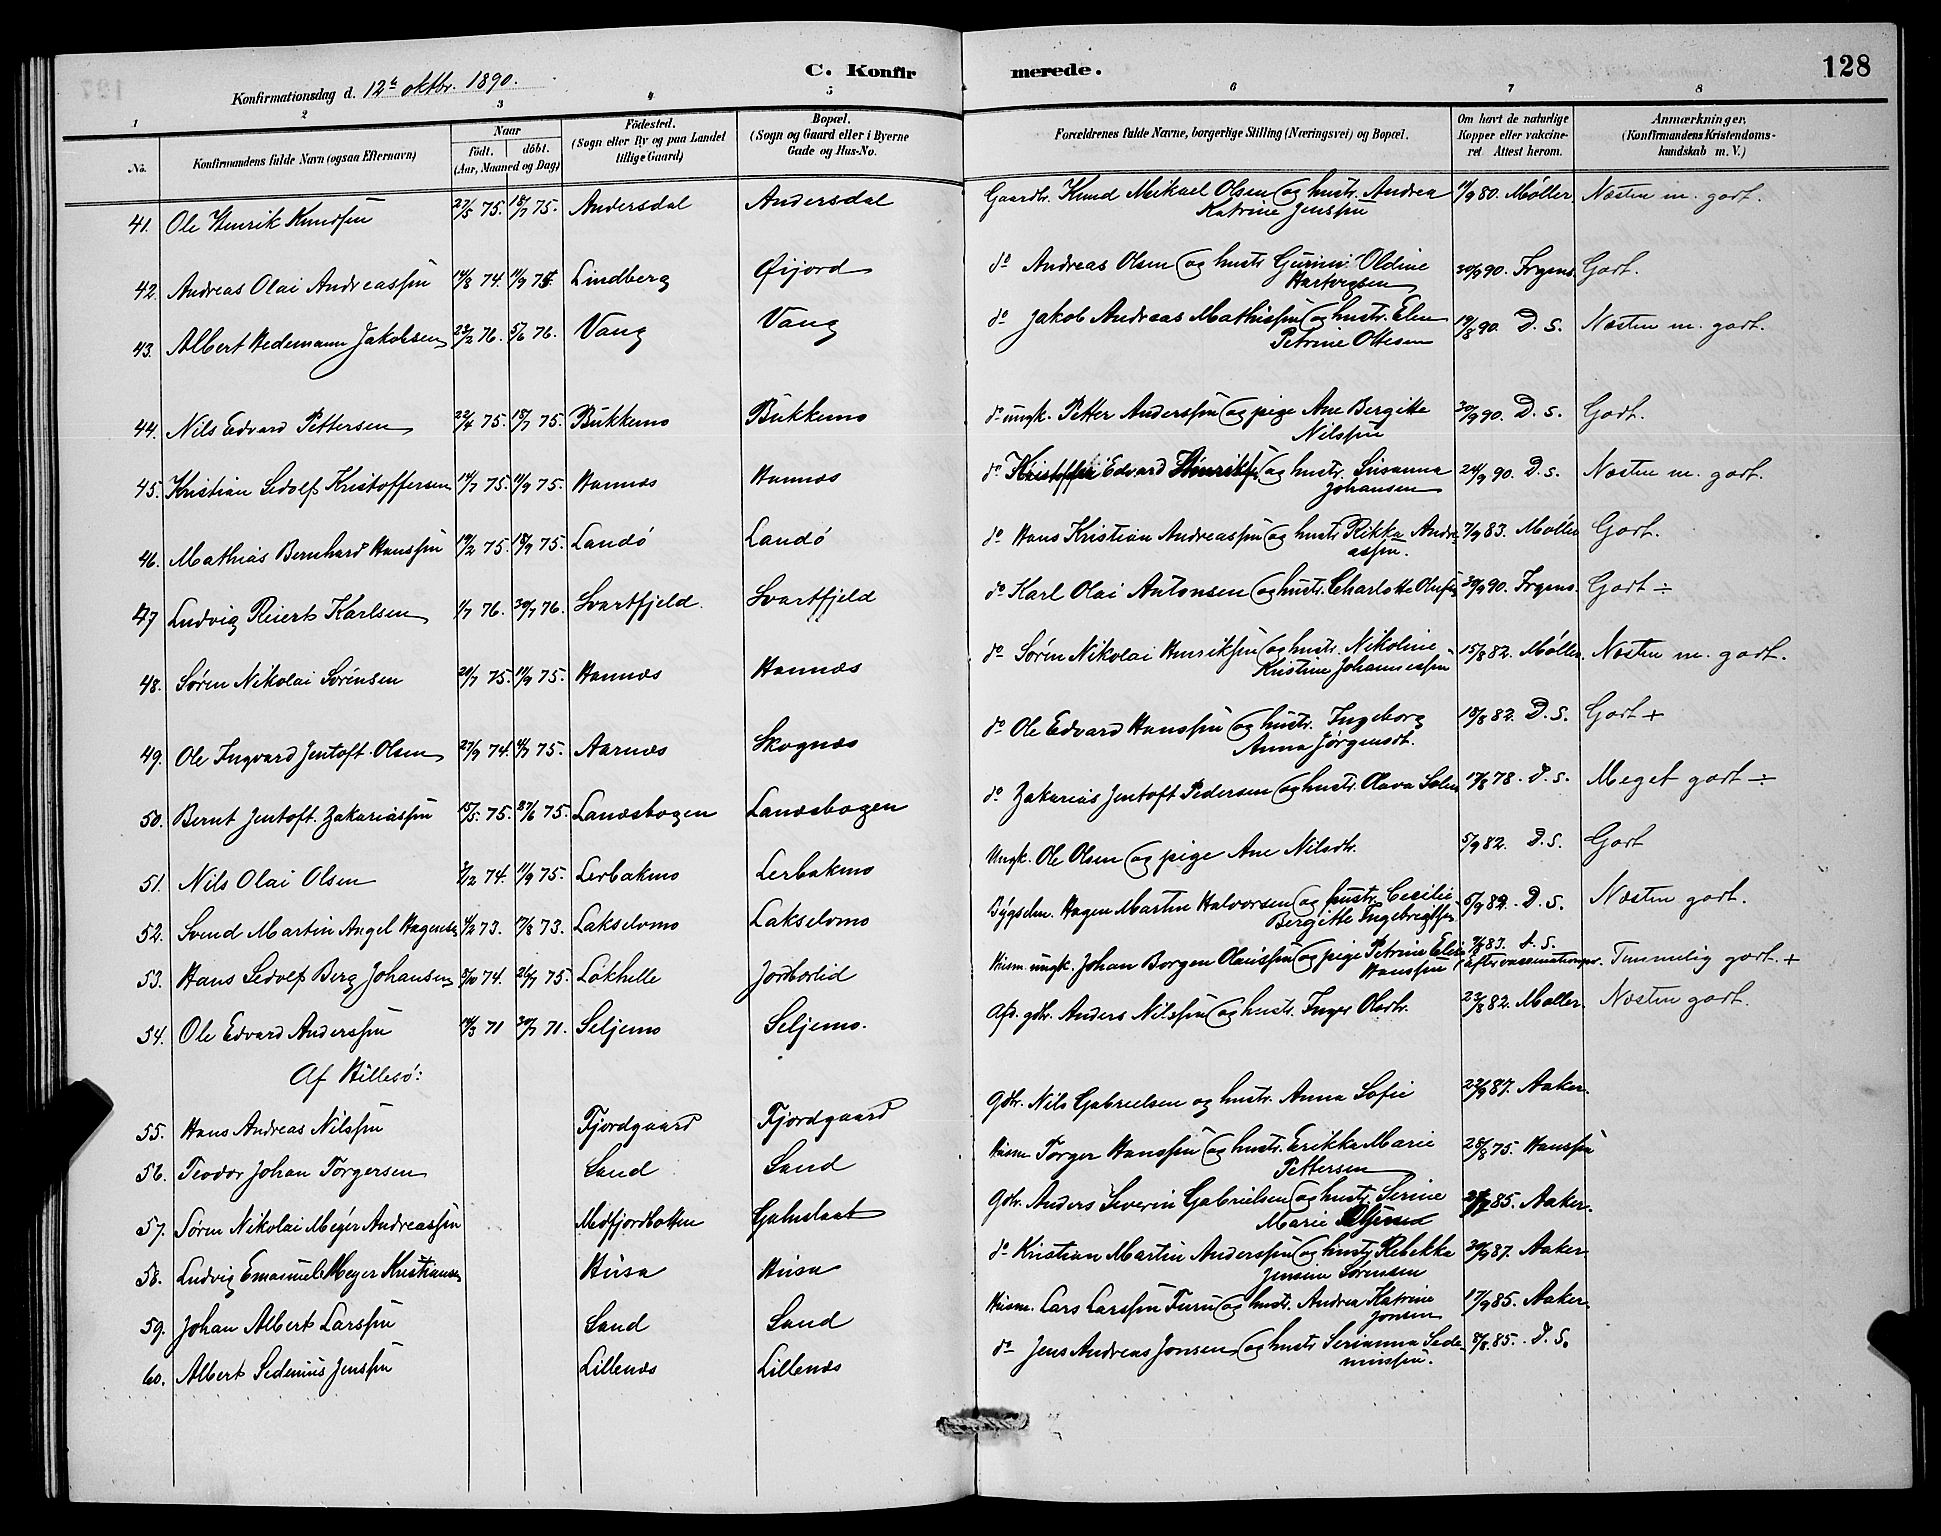 128
C. Konfirmerede.
Konfirmationsdag d. 12te oktbr. 1890.
1 2 3 4 5 6 7 8
No. Konfirmandens fulde Navn (ogsaa Efternavn) Naar födt. döbt. (Aar, Maaned og Dag) Födested. (Sogn eller By og paa Landet tillige Gaard) Bopæl. (Sogn og Gaard eller i Byerne Gade og Hus-No. Forældrenes fulde Navne, borgerlige Stilling (Næringsvei) og Bopæl. Om havt de naturlige Kopper eller vakcineret. Attest herom. Anmærkninger. (Konfirmandens Kristendomskundskab m. V.)
41. Ole Henrik Knudsen 27/5 75. 18/7 75. Andersdal Andersdal Gaardbr. Knud Mikael Olsen og hustr. Andrea Katrine Jenssen 11/9 80. Møller Næsten m. godt.
42. Andreas Olai Andreassen 14/8 74. 11/9 75. Lindberg Øijord do Andreas Olsen og hustr. Gurine Oldine Hartvigsen 30/9 90. Irgens. Godt.
43. Albert Hedemann Jakobsen 23/2 76. 5/6 76. Vang Vang do Jakob Andreas Mathissen og hustr. Elen Petrine Ottesen 19/8 90. D. S. Næsten m. godt.
44. Nils Edvard Pettersen 22/4 75. 18/7 75. Bukkemo Bukkemo do ungk. Petter Anderssen og pige Ane Bergitte Nilssen 30/9 90. D. S. Godt.
45. Kristian Sedolf Kristoffersen 14/7 75. 11/9 75. Hannæs Hannæs do Kristoffer Edvard Henriksen og hustr. Susanna Johansen 24/9 90. D. S. Næsten m. godt.
46. Mathias Bernhard Hanssen 19/2 75. 18/9 75. Landø Landø do Hans Kristian Andreassen og hustr. Rikka Andreassen. 7/9 83. Møller Godt.
47 Ludvig Reiert Karlsen 1/7 76. 30/7 76. Svartfjeld. Svartfjeld do Karl Olai Antonsen og hustr. Charlotte Olufs 30/9 90. Irgens. Godt ÷
48. Søren Nikolai Sørensen 20/7 75. 11/9 75. Hannæs Hannæs do Søren Nikolai Henriksen og hustr. Nikoline Kristine Johannessen 15/8 82. Møller. Næsten m. godt.
49. Ole Ingvard Jentoft Olsen 27/9 74. 4/7 75. Aarnæs Skognæs do Ole Edvard Hanssen og hustr. Ingeborg Anna Jørgensdt. 18/8 82. D. S. Godt +
50. Bernt Jentoft Zakariassen 15/5 75. 27/6 75. Lanæsbogen Lanæsbogen do Zakarias Jentoft Pedersen og hustr. Olava 17/8 78. D. S. Meget godt ÷
51. Nils Olai Olsen 3/12 74. 11/9 75. Lerbakmo Lerbakmo Ungk. Ole Olsen og pige Ane Nilsdtr. 5/9 82. D. S. Godt
52. Svend Martin Angel Hagensen 4/2 73. 17/8 73. Lakselvmo Lakselvmo Bygselm. Hagen Martin Halvorsen og hustr. Cecilie Bergitte Ingebrigtsen 5/9 82. D. S. Næsten godt.
53. Hans Sedolf Berg Johansen 8/10 74. 26/7 75. Lakhelle Jordbærlid Husm. ungk. Johan Borgen Olaissen og pige Petrine Elise Hanssen 9/8 83. D. S. Temmelig godt. +
54. Ole Edvard Anderssen 14/3 71 30/7 71. Seljemo Seljemo. Afd. gdbr. Anders Nilssen og hustr. Inger Olsdtr. 22/8 82. Møller. Næsten godt.
Af Hillesø:
55. Hans Andreas Nilssen Fjordgaard Fjordgaard Gdbr. Nils Gabrielsen og hustr. Anna Sofie 22/9 87. Aaker.
56. Teodor Johan Torgersen Sand Sand Husm. Torger Hanssen og hustr. Erikka Marie Pettersen 28/8 75. Hanssen
57. Søren Nikolai Mejer Andreassen Medfjordbotten Galnslaat Gdbr. Anders Severin Gabrielsen og hustr. Serine Marie 85. Aaker.
58. Ludvig Emanuel Meyer Kristiansen Husa Husa do Kristian Martin Anderssen og hustr. Rebekka Jensine Sørensen 30/9 87. Aaker.
59. Johan Albert Larssen Sand Sand Husm. Lars Larssen Furu og hustr. Andrea Katrine Jonsen 17/9 85. Aaker.
60. Albert Sedenius Jenssen Lillenæs Lillenæs do Jens Andreas Jonsen og hustr. Serianna Sedeniussen. 8/8 85. D. S.